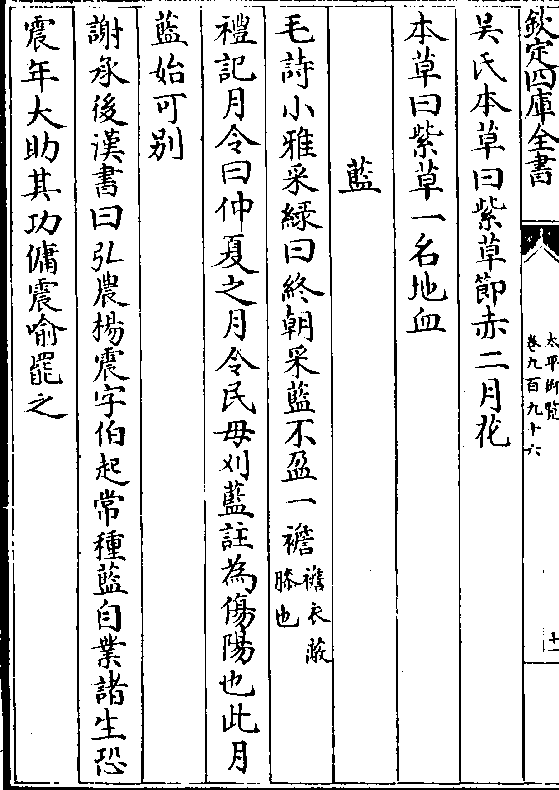 欽定四庫全書
太平御覽
卷九百九十六
十一
吳氏本草曰紫草節赤二月花
本草曰紫草一名地血
藍
毛詩小雅采綠曰終朝采藍不盈一襜襜衣蔽膝也
禮記月令曰仲夏之月令民毋刈藍註為傷陽也此月
藍始可别
謝承後漢書曰弘農楊震字伯起常種藍自業諸生恐
震年大助其功傭震喻罷之